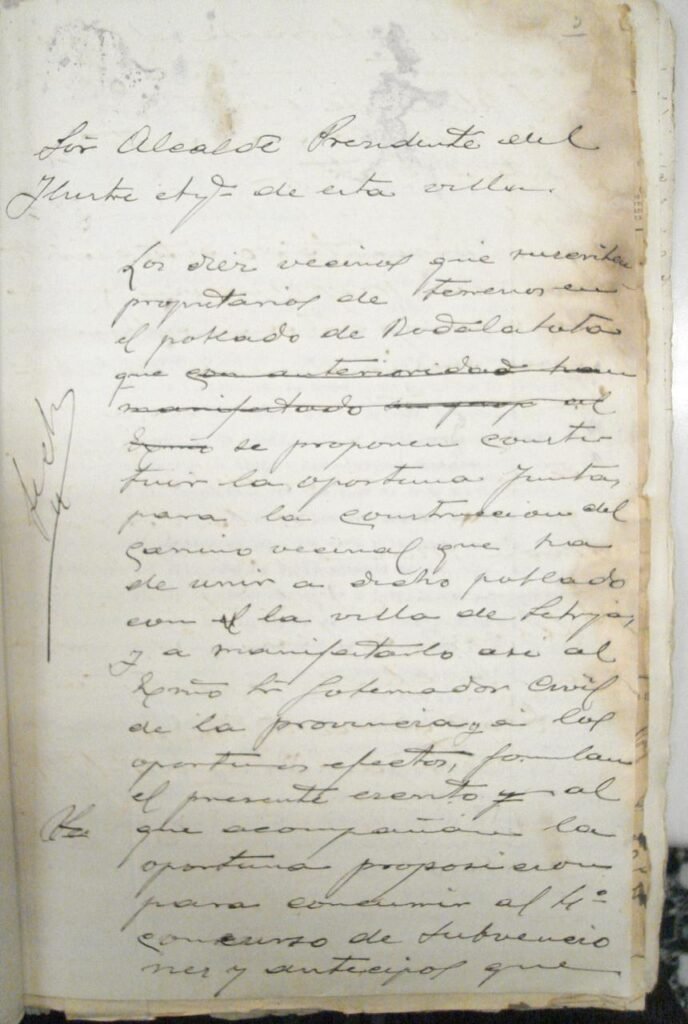 Sör Alcalde Presidente del
Ilustre Ayº de esta villa.
Los diez vecinos que suscriben
propietarios de terrenos en
el poblado de Rodalatota
que con anterioridad han
manifestado al
Excmo se proponen consti
tuir la oportuna Junta,
para la construccion del
camino vecinal que ha
de unir a dicho poblado
con la villa de
y a manifestarlo asi al
Excmo Sr Gobernador Civil
de la provincia y a los
oportunos efectos, formulan
el presente escrito y al
que acompañan la
oportuna proposicion
para concurrir al 4º
concurso de subvencio
nes y anticipos que